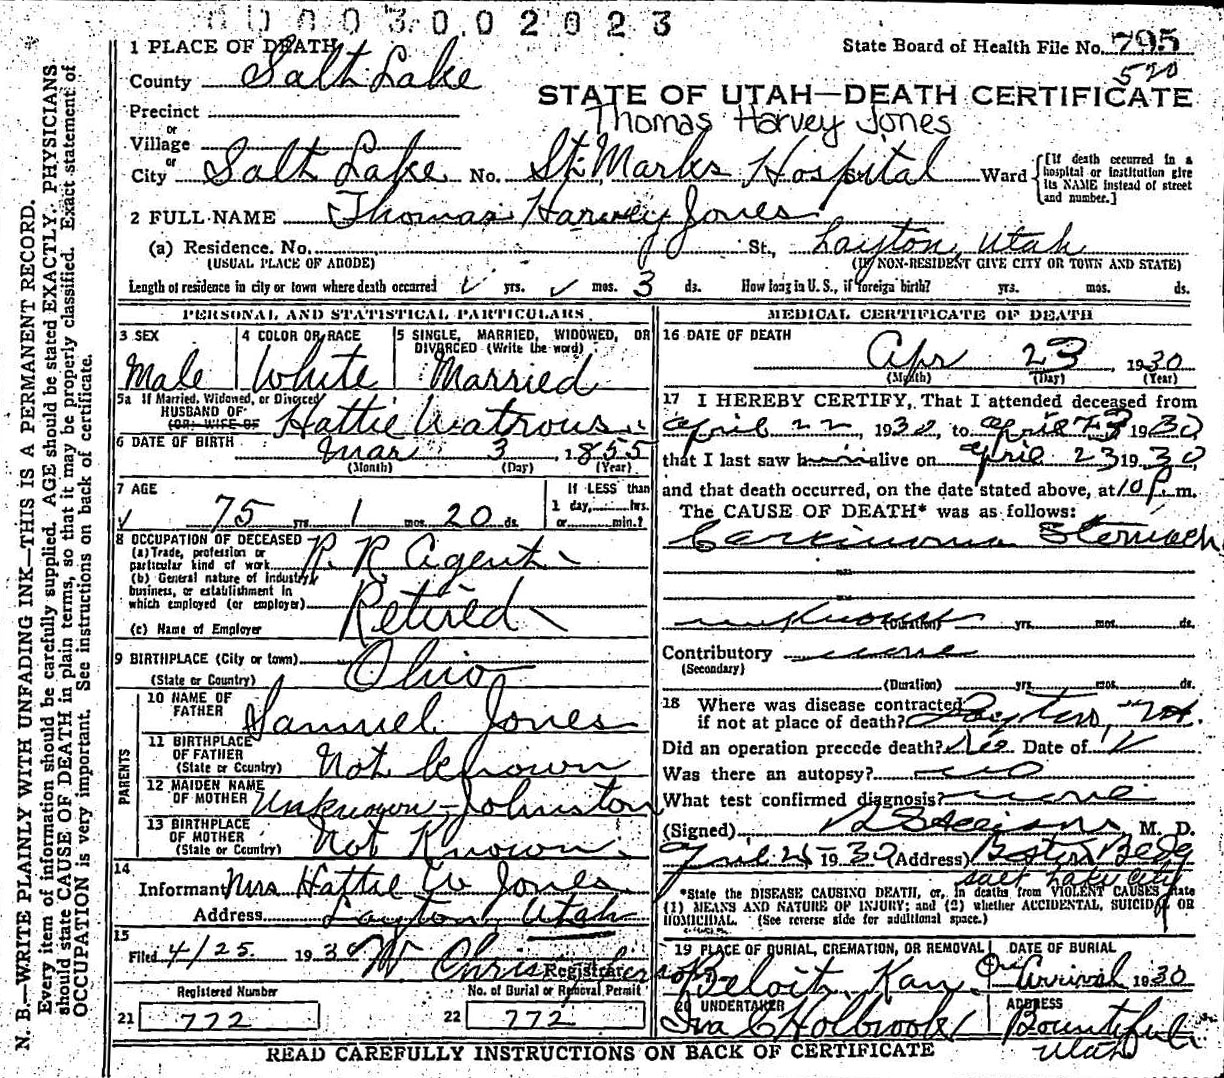 00003002023
1 PLACE OF DEATH
State Board of Health File No. 795
520
County Salt Lake
STATE OF UTAH—DEATH CERTIFICATE
Thomas Harvey Jones
Precinct
or
Village
or
City Salt Lake No. St. Marks Hospital Ward [If death occurred in a hospital or institution give its NAME instead of street and number.]
2 FULL NAME Thomas Harvey Jones
(a) Residence. No. St., Layton, Utah
(USUAL PLACE OF ABODE) (IF NON-RESIDENT GIVE CITY OR TOWN AND STATE)
Length of residence in city or town where death occurred yrs. mos. 3 ds. How long in U. S., if foreign birth? yrs. mos. ds.
PERSONAL AND STATISTICAL PARTICULARS
3 SEX
Male
4 COLOR OR RACE
White
5 SINGLE, MARRIED, WIDOWED, OR DIVORCED (Write the word)
Married
5a If Married, Widowed, or Divorced
HUSBAND OF
(OR) WIFE OF
Hattie Watrous
6 DATE OF BIRTH
Mar 3 1855
(Month) (Day) (Year)
7 AGE
75 yrs. 1 mos. 20 ds.
If LESS than
1 day, hrs.
or min.?
8 OCCUPATION OF DECEASED
(a) Trade, profession or
particular kind of work R. R. Agent
(b) General nature of industry,
business, or establishment in
which employed (or employer) Retired
(c) Name of Employer
9 BIRTHPLACE (City or town)
(State or Country) Ohio
PARENTS
10 NAME OF
FATHER Samuel Jones
11 BIRTHPLACE
OF FATHER
(State or Country) Not Known
12 MAIDEN NAME
OF MOTHER Unknown - Johnston
13 BIRTHPLACE
OF MOTHER
(State or Country) Not Known
14
Informant Mrs Hattie W Jones
Address Layton, Utah
15
Filed 4/25 1930 W Christopherson
Registrar
Registered Number
21 772
No. of Burial or Removal Permit
22 772
MEDICAL CERTIFICATE OF DEATH
16 DATE OF DEATH
Apr 23, 1930
(Month) (Day) (Year)
17 I HEREBY CERTIFY, That I attended deceased from
April 22 1930, to April 23 1930
that I last saw him alive on April 23 1930
and that death occurred, on the date stated above, at 10 P. m.
The CAUSE OF DEATH* was as follows:
Carcinoma Stomach
unknown (Duration) yrs. mos. ds.
Contributory none
(Secondary)
(Duration) yrs. mos. ds.
18 Where was disease contracted
if not at place of death? Layton, Ut.
Did an operation precede death? No Date of
Was there an autopsy? no
What test confirmed diagnosis? none
(Signed) M. D.
April 25 1930 (Address) Boston Bldg
Salt Lake City
*State the DISEASE CAUSING DEATH, or, in deaths from VIOLENT CAUSES state
(1) MEANS AND NATURE OF INJURY; and (2) whether ACCIDENTAL, SUICIDAL OR
HOMICIDAL. (See reverse side for additional space.)
19 PLACE OF BURIAL, CREMATION, OR REMOVAL
Beloit, Kan.
DATE OF BURIAL
On Arrival 1930
20 UNDERTAKER
Iva C Holbrook
ADDRESS
Bountiful
Utah
READ CAREFULLY INSTRUCTIONS ON BACK OF CERTIFICATE
N. B.—WRITE PLAINLY WITH UNFADING INK—THIS IS A PERMANENT RECORD.
Every item of information should be carefully supplied. AGE should be stated EXACTLY. PHYSICIANS
should state CAUSE OF DEATH in plain terms, so that it may be properly classified. Exact statement of
OCCUPATION is very important. See instructions on back of certificate.